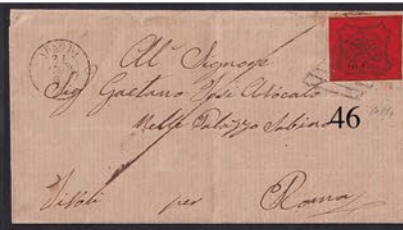 All' Signore
Sig Gaetano Tosi Avocato
Nelle Palazzo Sabino
46
per Roma